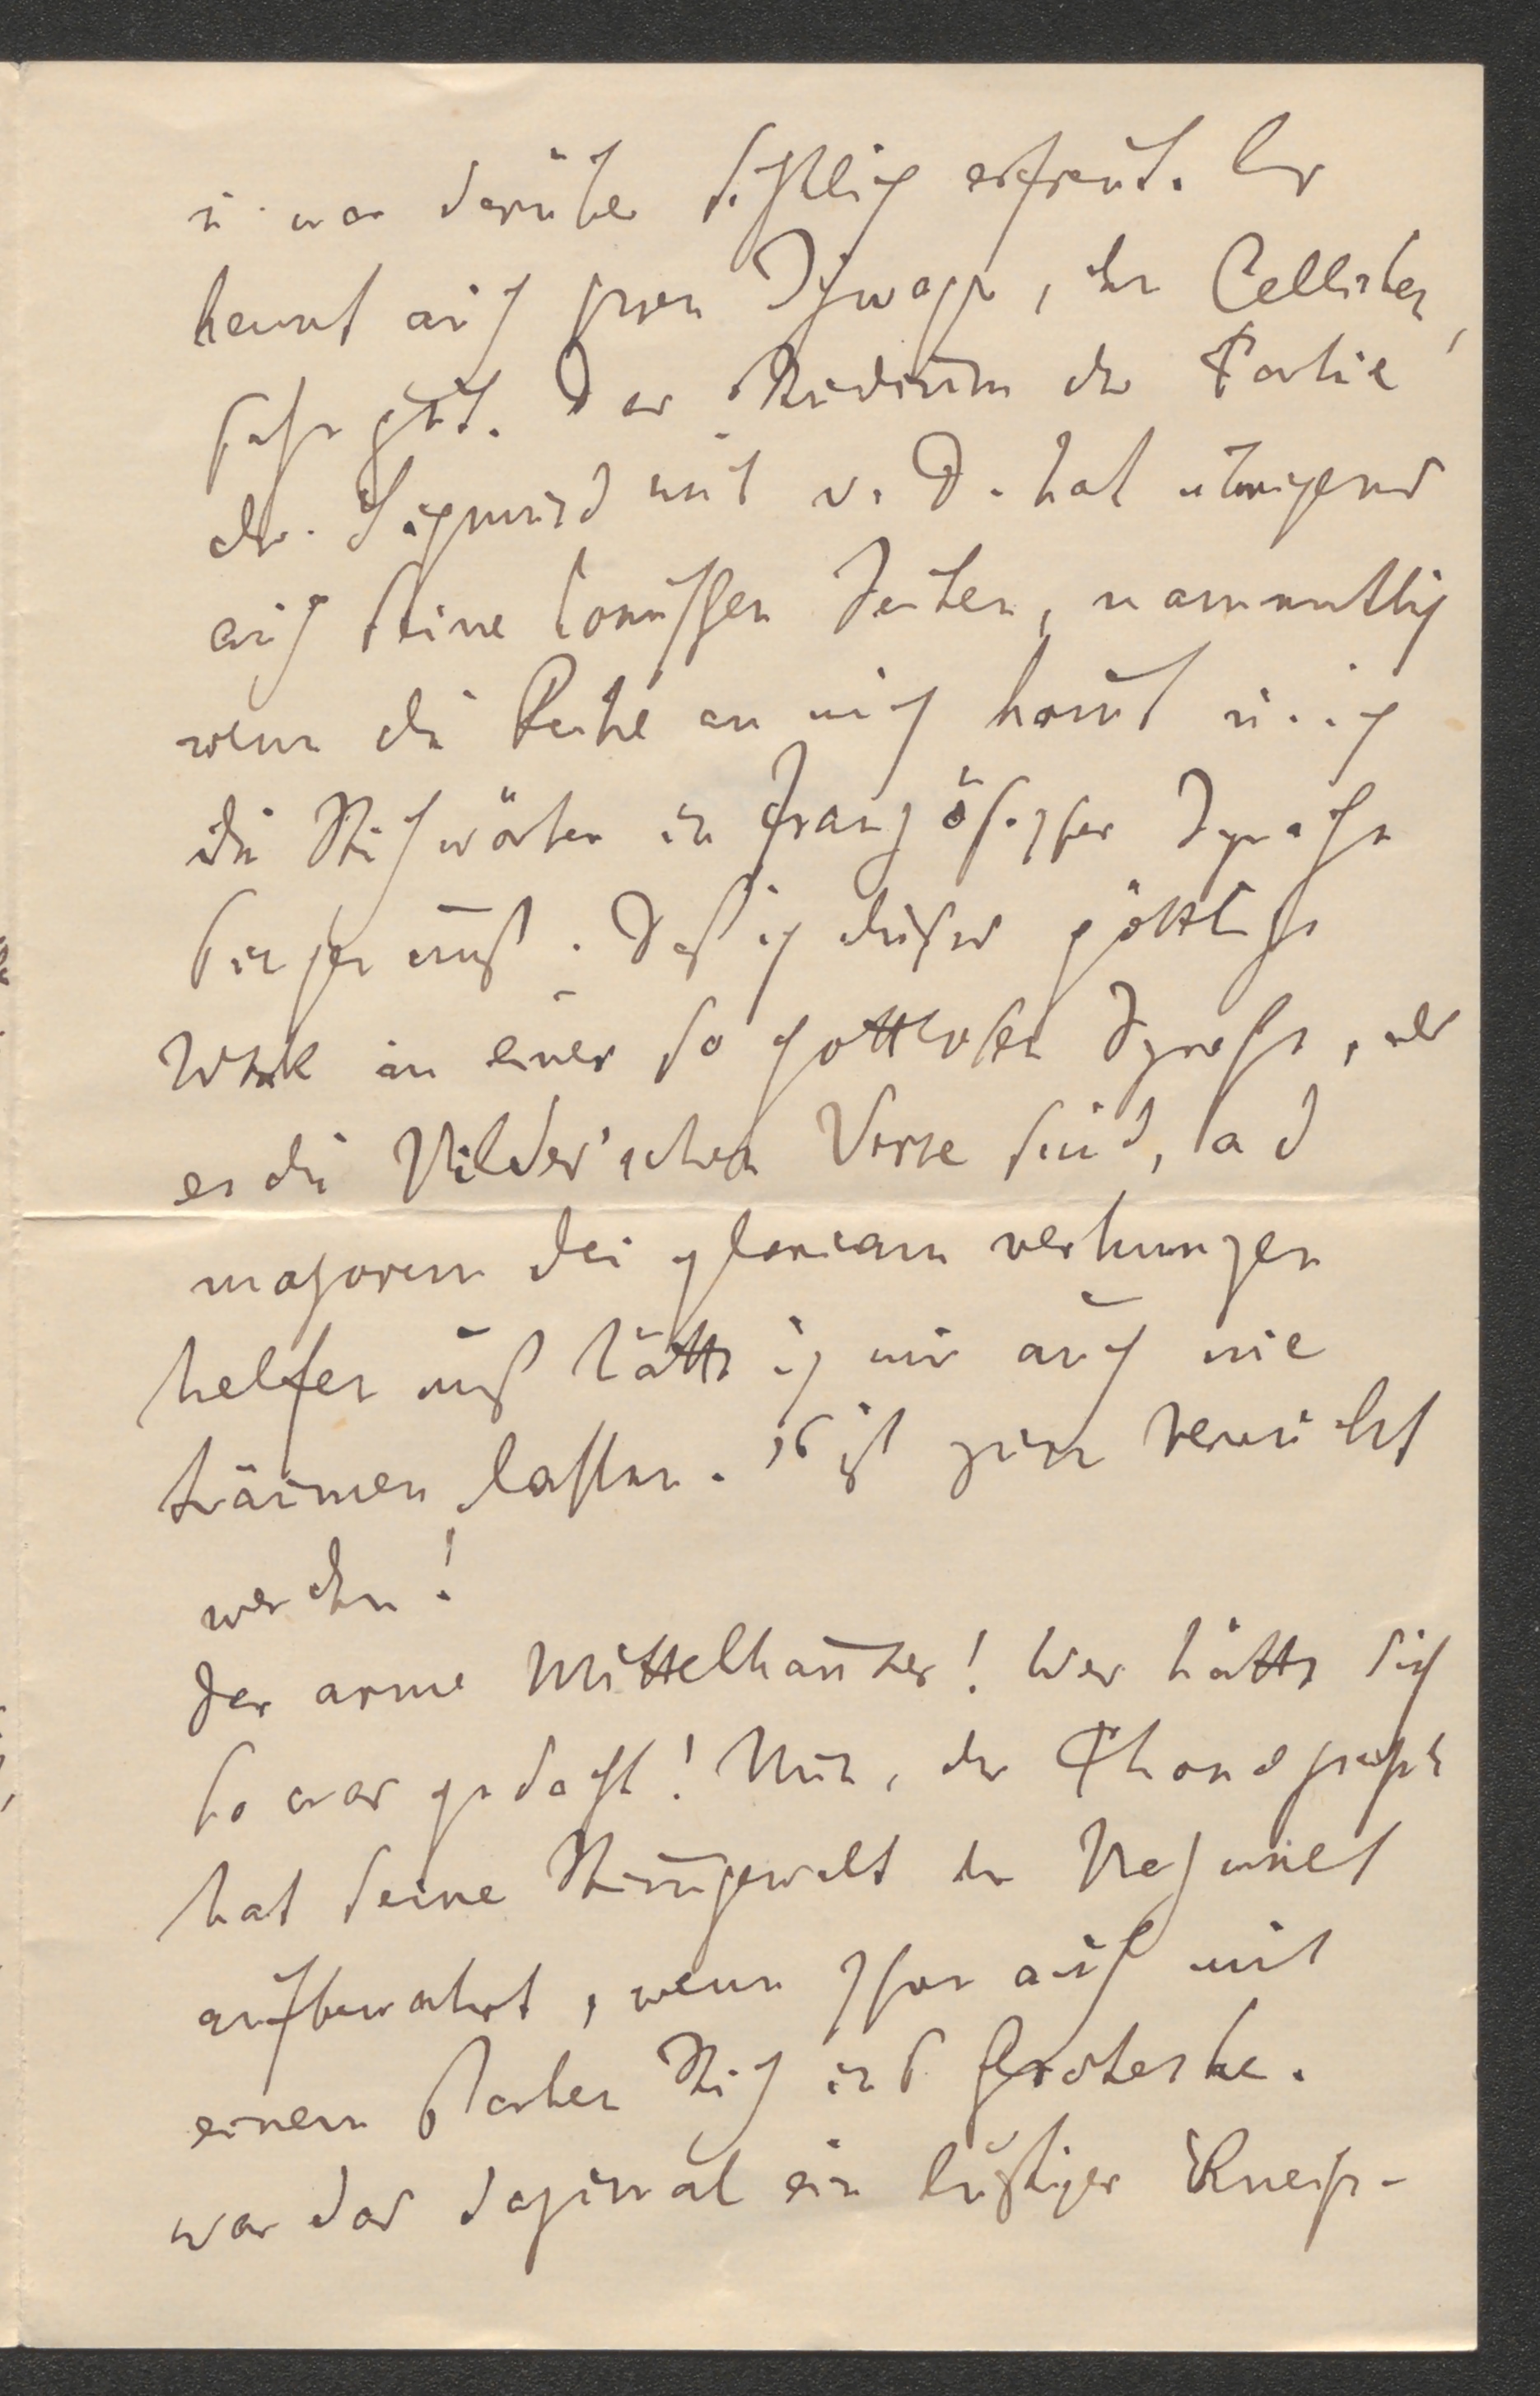 u. war darüber sichtlich erfreut. Er
kennt auch Ihren Schwager, den Cellisten,
sehr gut. Das Studium der Partie
des Siegmund mit v. D. hat übrigens
auch seine komischen Seiten, namentlich
wenn die Reihe an mich kommt u. ich
die Stichwörter in französischer Sprache
singen muß. Daß ich dieses göttliche
Werk in einer so gottlosen Sprache, als
es die Wilder'schen Verse sind, ad
majorem dei gloriam verhunzen
helfen muß hätte ich mir auch nie
träumen lassen. 's ist zum verrückt
werden!
Der arme Mittelhauser! Wer hätte sich
so was gedacht! Nun, der Phonograph
hat seine Stimmgewalt der Nachwelt
aufbewahrt, wenn schon auch mit
einem starken Stich ins Groteske.
war das dazumal ein lustiger Kneip-